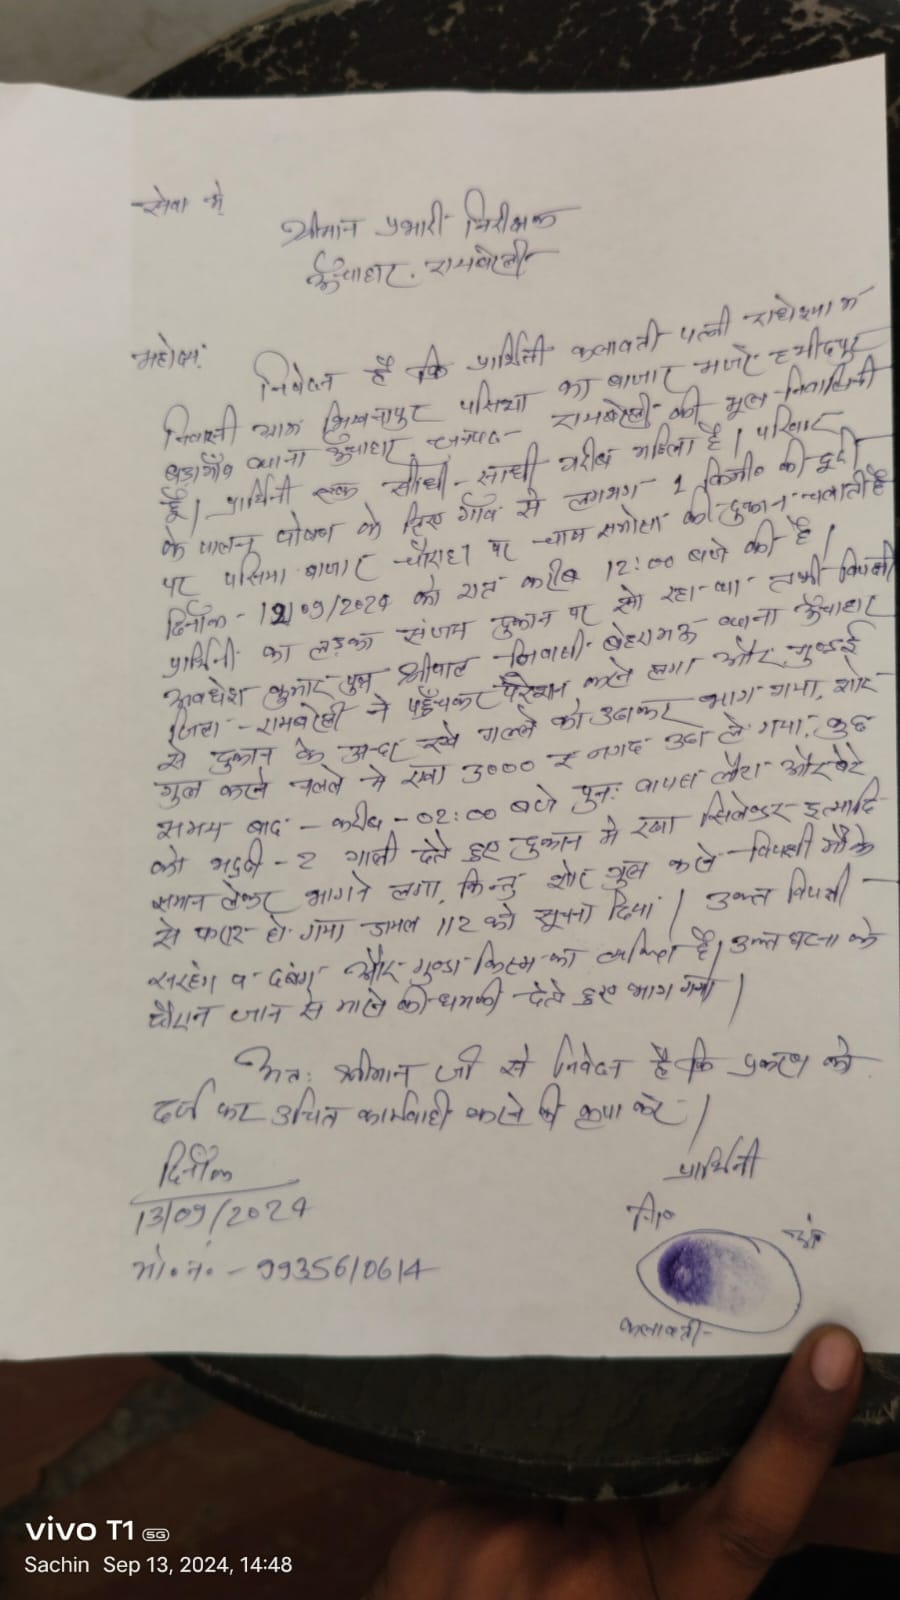 सेवा में
श्रीमान प्रभारी निरीक्षक
ऊँचाहार, रायबरेली
महोदय,
निवेदन है कि प्रार्थिनी कलावती पत्नी राधेश्याम
निवासी ग्राम भिखनापुर पसिया का बाजार मजरे हमीदपुर
बड़ागाँव थाना ऊँचाहार जनपद- रायबरेली की मूल निवासिनी
हूँ। प्रार्थिनी एक सीधी-साधी गरीब महिला है। परिवार
के पालन पोषण के लिए गाँव से लगभग 1 कि०मी० की दूरी
पर पसिया बाजार चौराहा पर चाय समोसा की दुकान चलाती है
दिनाँक- 12/09/2024 को रात करीब 12:00 बजे की है।
प्रार्थिनी का लड़का संजय दुकान पर सो रहा था तभी विपक्षी
अवधेश कुमार पुत्र श्रीपाल निवासी थाना ऊँचाहार
जिला- रायबरेली ने पहुँचकर परेशान करने लगा और गुण्डई
से दुकान के अन्दर रखे गल्ले को उठाकर भाग गया, शोर
गुल करने गल्ले मे रखा 3000 रु नगद उठा ले गया, कुछ
समय बाद - करीब - 02:00 बजे पुनः वापस लौटा और बेटे
को भद्दी-2 गाली देते हुए दुकान मे रखा सिलेण्डर इत्यादि
समान लेकर भागने लगा, किन्तु शोर गुल करने विपक्षी मौके
से फरार हो गया डायल 112 को सूचना दिया। उक्त विपक्षी
सरहंग व दबंग और गुण्डा किस्म का व्यक्ति है। उक्त घटना के
दौरान जान से मारने की धमकी देते हुए भाग गया।
अतः श्रीमान जी से निवेदन है कि प्रकरण को
दर्ज कर उचित कार्यवाही करने की कृपा करें।
दिनाँक प्रार्थिनी
13/09/2024 नि०
मो.नं. - 9935610614
कलावती
vivo T1 5G
Sachin Sep 13, 2024, 14:48